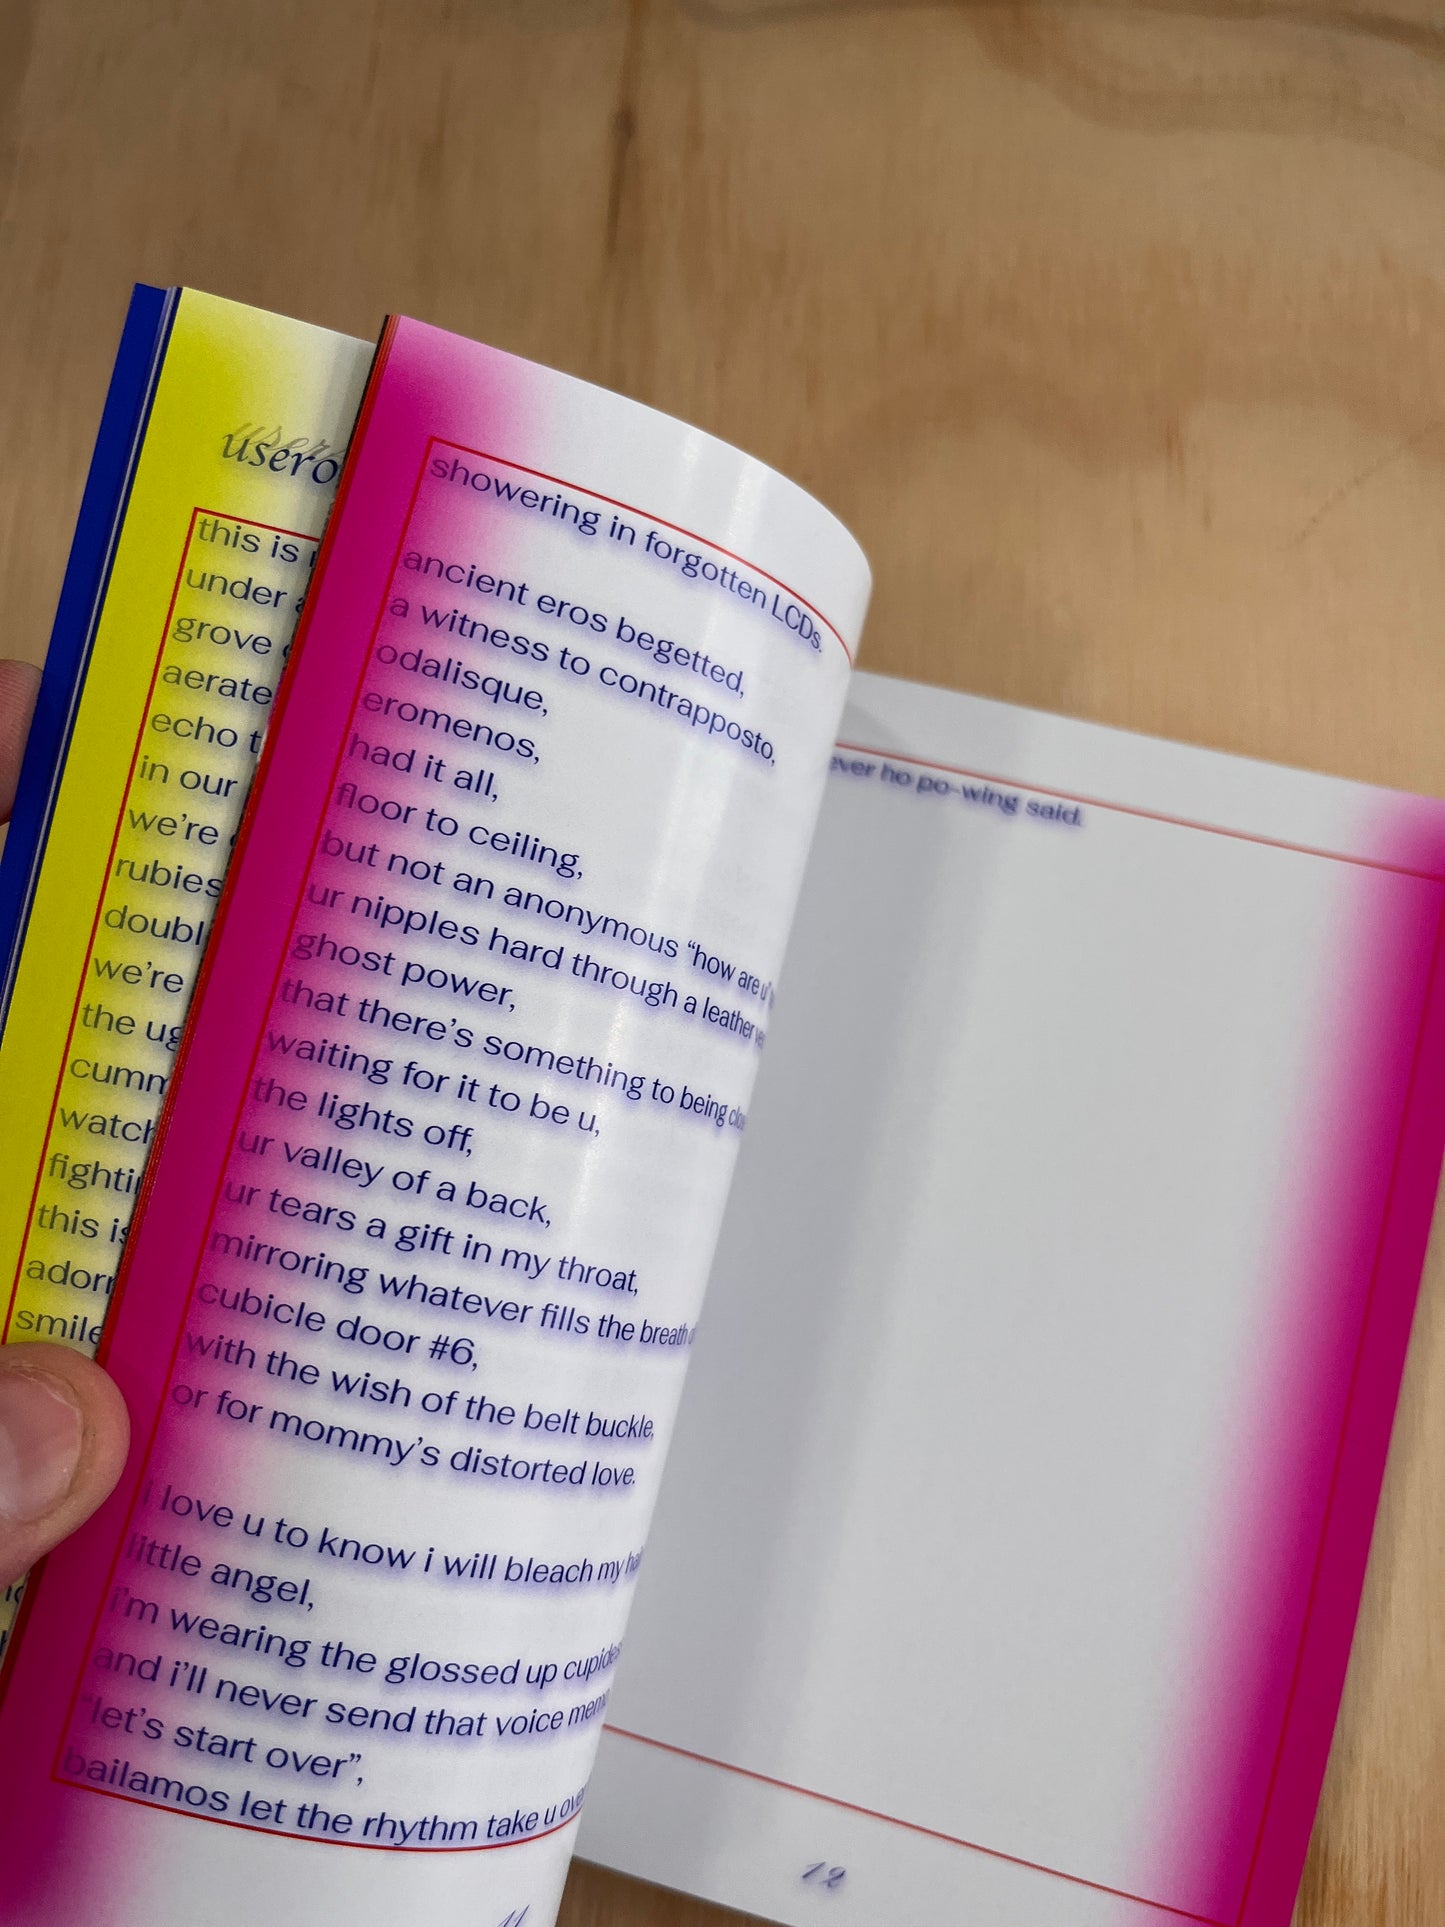 usero
this is
under
grove
aerate
echo
in our
we're
rubies
doubl
we're
the ug
cumm
watch
fightin
this is
adorn
smile
showering in forgotten LCDs.
ancient eros begetted,
a witness to contrapposto,
odalisque,
eromenos,
had it all,
floor to ceiling,
but not an anonymous “how are u”
ur nipples hard through a leather
ghost power,
that there’s something to being
waiting for it to be u,
the lights off,
ur valley of a back,
ur tears a gift in my throat,
mirroring whatever fills the breath
cubicle door #6,
with the wish of the belt buckle,
or for mommy’s distorted love.
i love u to know i will bleach my
little angel,
i’m wearing the glossed up
and i’ll never send that voice
“let’s start over”,
bailamos let the rhythm take u over
11
ever ho po-wing said.
12